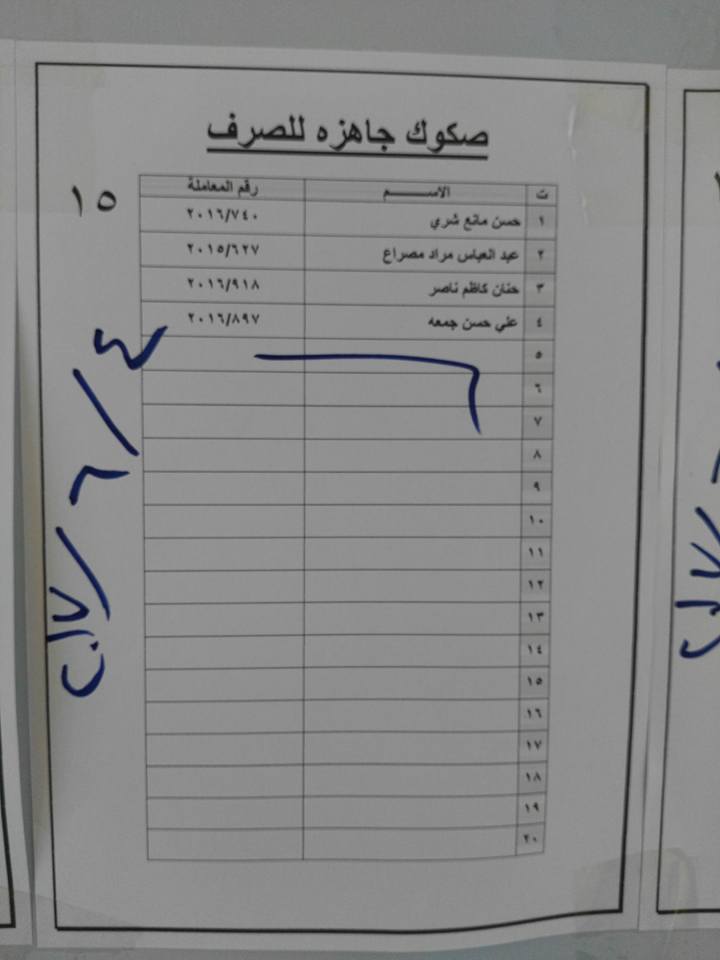 صكوك جاهزه للصرف
١٥
ت الاســـــم رقم المعاملة
١ حسن مانع شري ٢٠١٦/٧٤٠
٢ عبد العباس مراد مصراع ٢٠١٥/٦٢٧
٣ حنان كاظم ناصر ٢٠١٦/٩١٨
٤ علي حسن جمعه ٢٠١٦/٨٩٧
٥
٦
٧
٨
٩
١٠
١١
١٢
١٣
١٤
١٥
١٦
١٧
١٨
١٩
٢٠
٢٠١٧/٦/٤